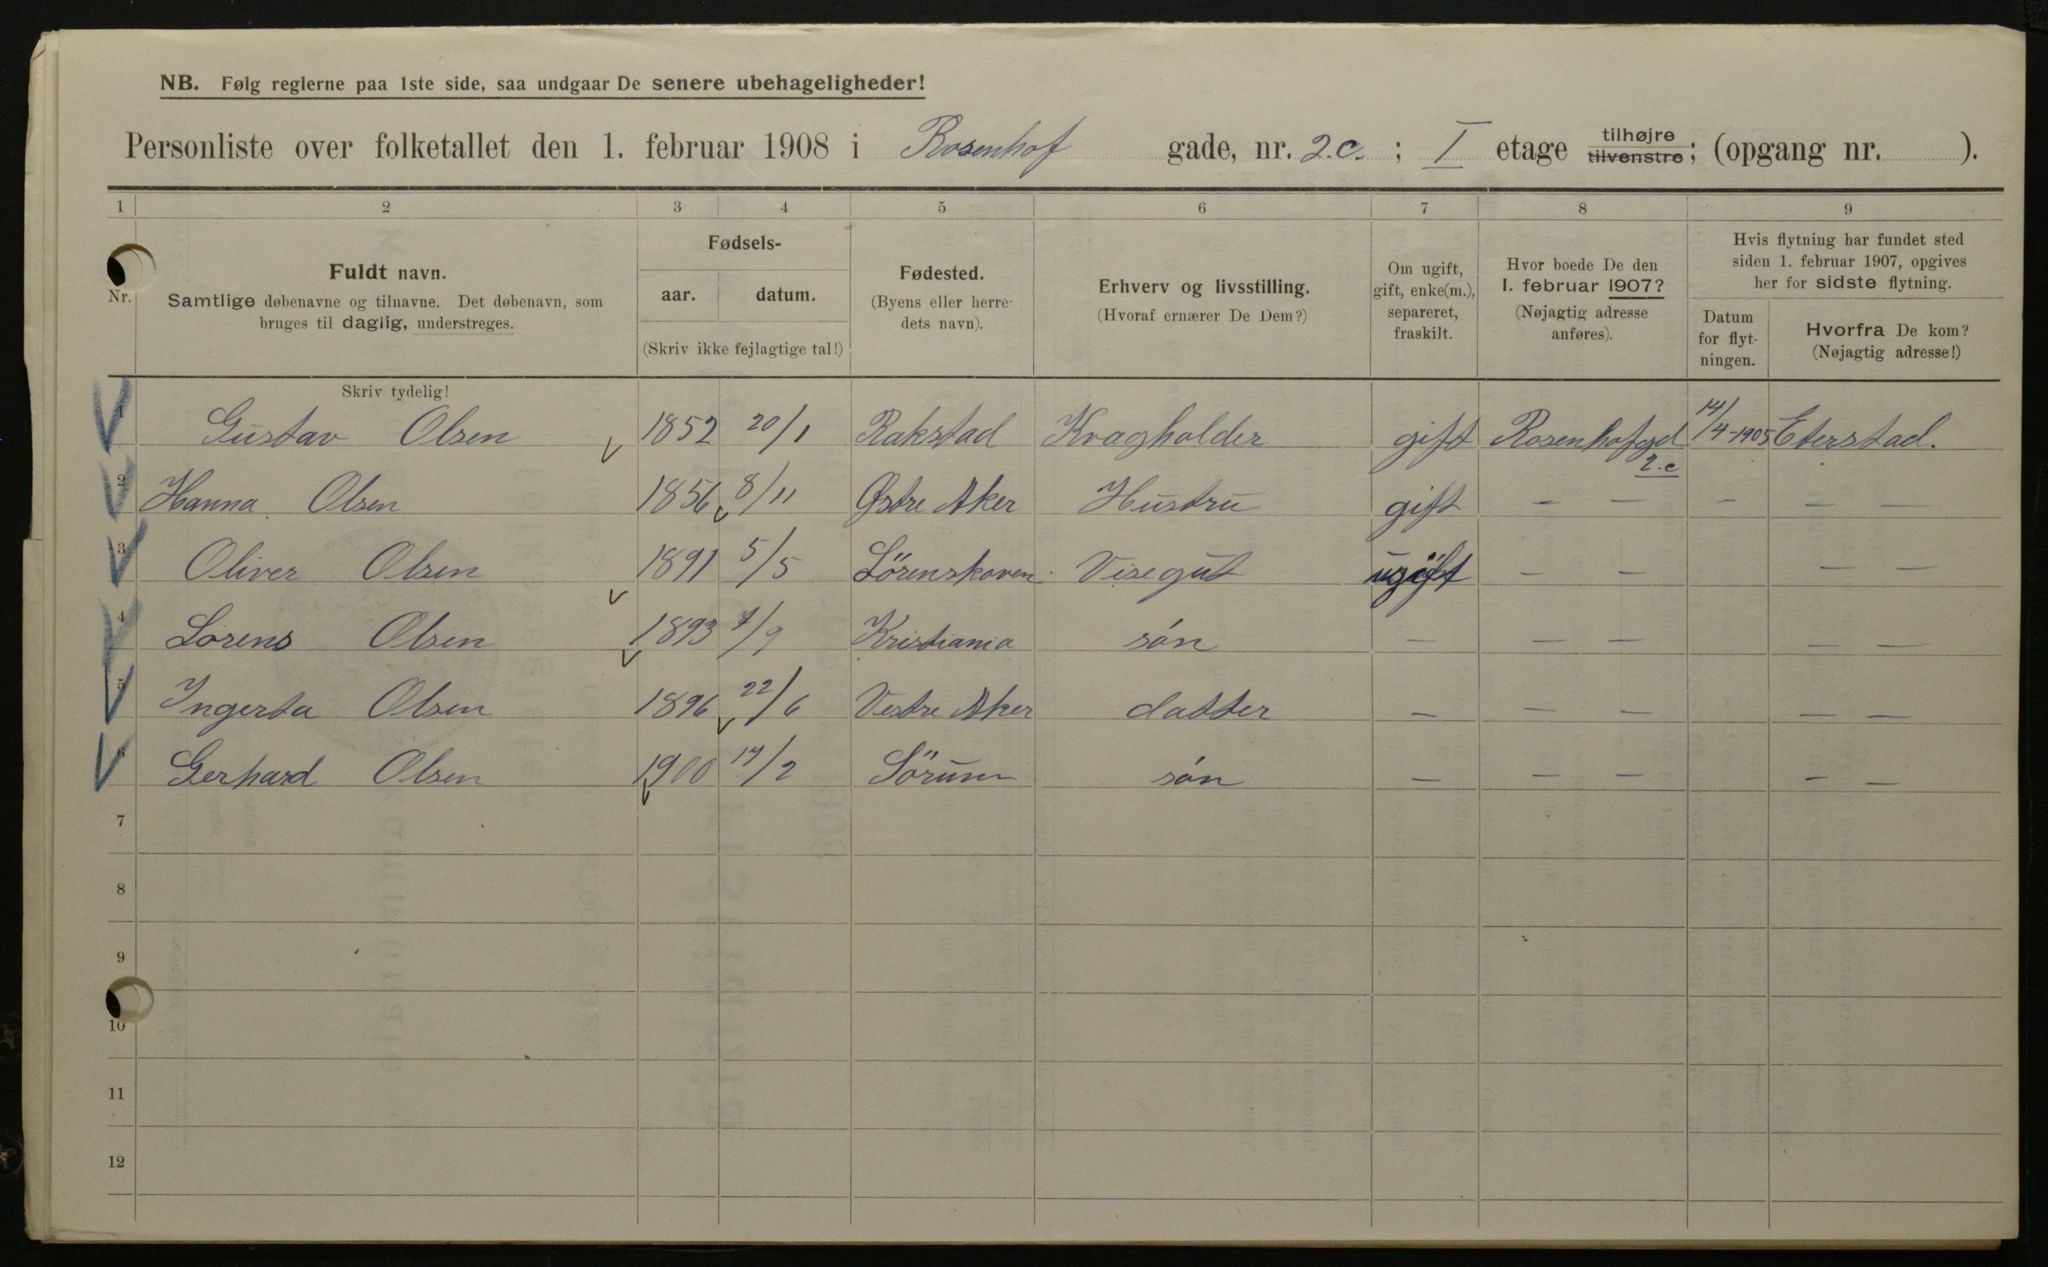 NB. Følg reglerne paa 1ste side, saa undgaar De senere ubehageligheder!
Personliste over folketallet den 1. februar 1908 i Rosenhof gade, nr. 2.c. ; I etage tilhøjre tilvenstre; (opgang nr. ).
1 2 3 4 5 6 7 8 9
Nr.
Fuldt navn.
Samtlige døbenavne og tilnavne. Det døbenavn, som
bruges til daglig, understreges.
Skriv tydelig!
Fødsels-
aar. datum.
(Skriv ikke fejlagtige tal!)
Fødested.
(Byens eller herre-
dets navn).
Erhverv og livsstilling.
(Hvoraf ernærer De Dem?)
Om ugift,
gift, enke(m.),
separeret,
fraskilt.
Hvor boede De den
1. februar 1907?
(Nøjagtig adresse
anføres).
Hvis flytning har fundet sted
siden 1. februar 1907, opgives
her for sidste flytning.
Datum
for flyt-
ningen.
Hvorfra De kom?
(Nøjagtig adresse!)
1 Gustav Olsen 1852 20/1 Rakstad Kvagholder gift Rosenhofgd 2.c 14/4-1905 Eterstad.
2 Hanna Olsen 1856 8/11 Østre Aker Hustru gift — — - — —
3 Oliver Olsen 1891 5/5 Lörenskoven Visegut ugift — — — —
4 Lorens Olsen 1893 7/9 Kristiania són — — — — —
5 Ingerta Olsen 1896 22/6 Vestre Aker datter — — — — —
6 Gerhard Olsen 1900 /2 Sörum són — — — — —
7
8
9
10
11
12